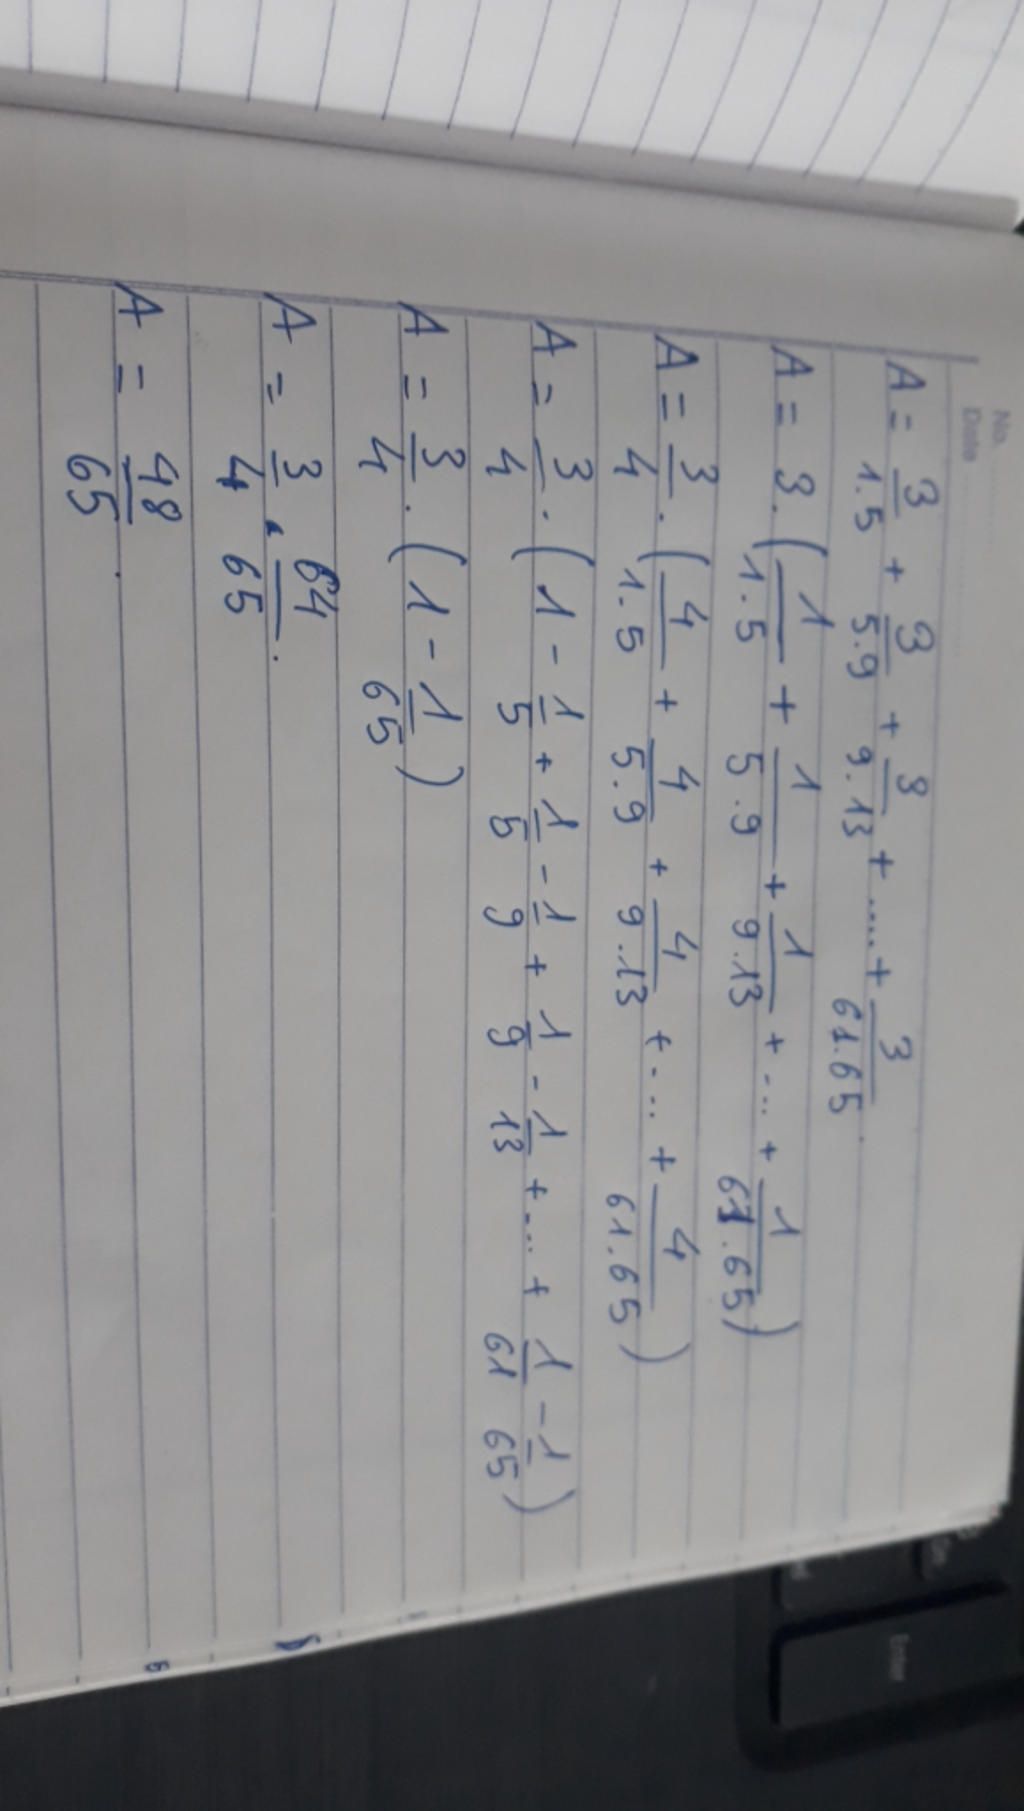 No.
Date
A = 3/1.5 + 3/5.9 + 3/9.13 + ..... + 3/61.65.
A = 3.(1/1.5 + 1/5.9 + 1/9.13 + ... + 1/61.65)
A = 3/4.(4/1.5 + 4/5.9 + 4/9.13 + ... + 4/61.65)
A = 3/4.(1 - 1/5 + 1/5 - 1/9 + 1/9 - 1/13 + ... + 1/61 - 1/65)
A = 3/4.(1 - 1/65)
A = 3/4 . 64/65.
A = 48/65.
Enter